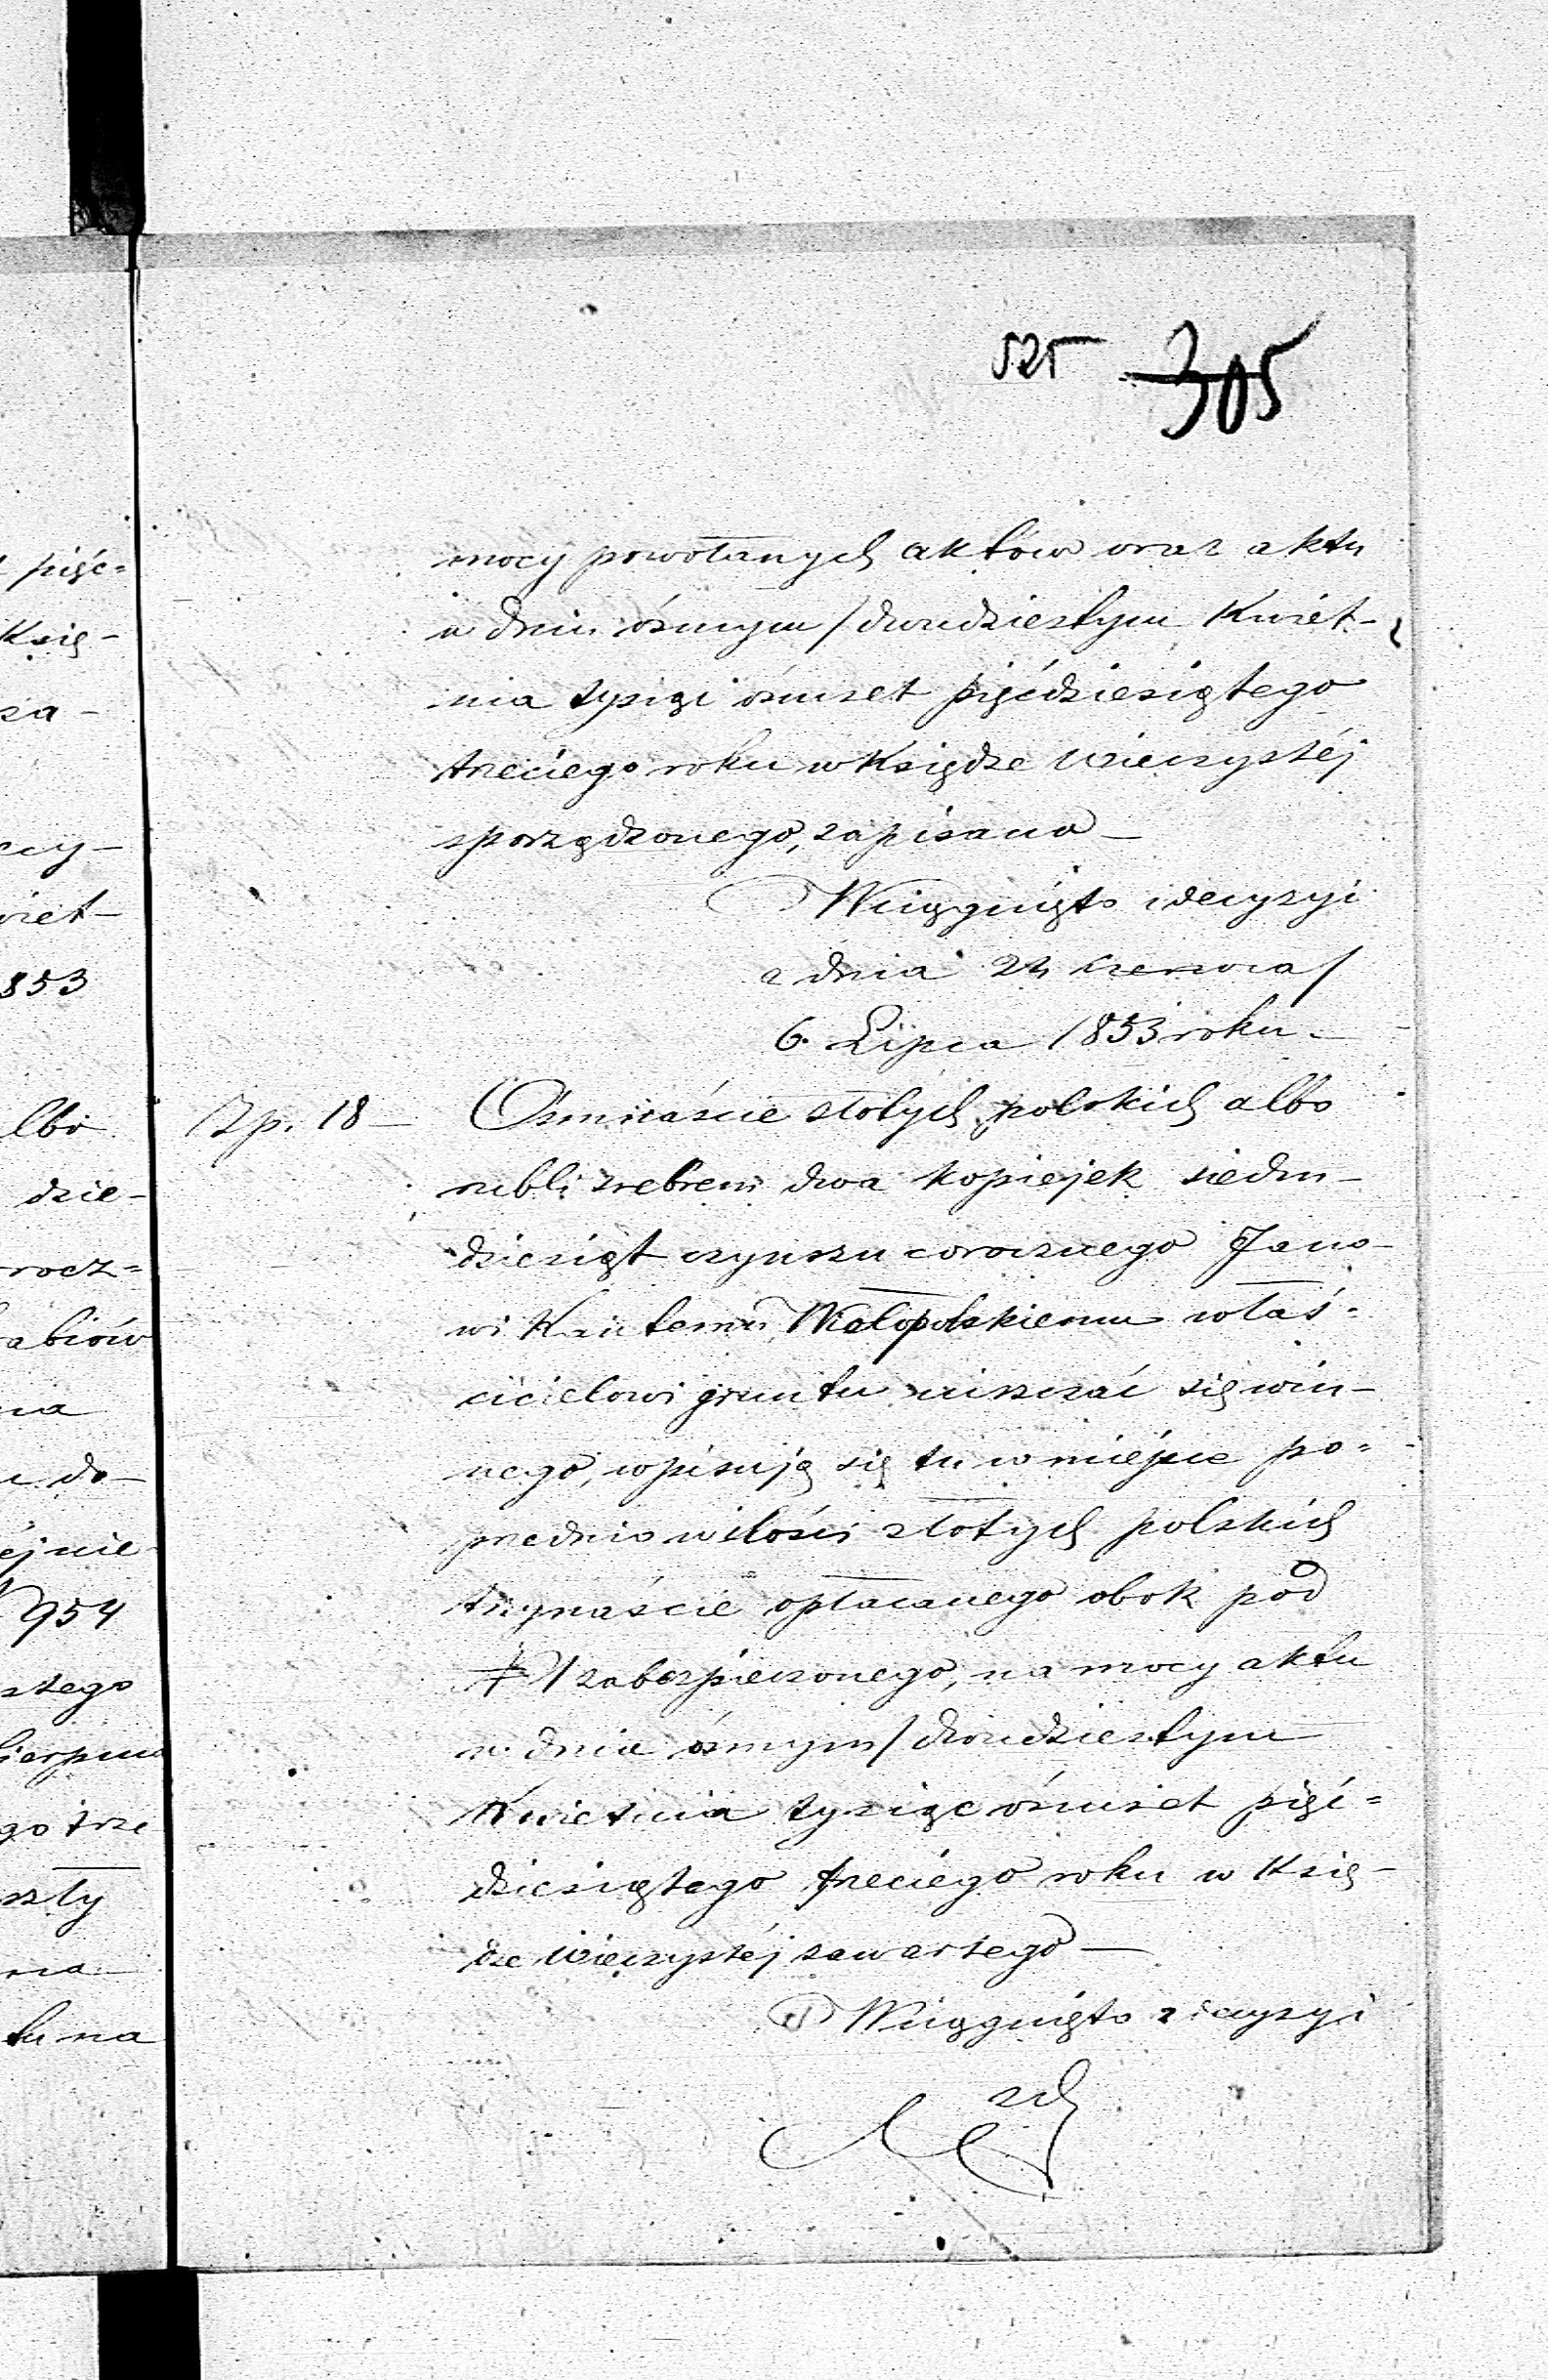 525 305
mocy powołanych aktów oraz aktu
w dniu ósmym / dwudziestym Kwiet-
nia tysiąc ośmset pięćdziesiątego
trzeciego roku w Księdze wieczystéj
sporządzonego, zapisano —
Wciągnięto z decyzyi
z dnia 24 Czerwca /
6. Lipca 1853 roku —
Zp. 18 — Ośmnaście złotych polskich albo
rubli srebrem dwa kopiejek siedm-
dziesiąt czynszu corocznego Jano-
wi Kantemu Wielopolskiemu właś-
cicielowi gruntu uiszczać się win-
nego, wpisują się tu w miejsce po=
przednio w ilości złotych polskich
trzynaście opłacanego obok pod
№ 1 zabezpieczonego, na mocy aktu
w dniu ósmym / dwudziestym
Kwietnia tysiąc ośmset pięć=
dziesiątego trzeciego roku w Księ-
dze wieczystéj zawartego —
Wciągnięto z decyzyi
zd
pięć=
Księ-
za-
cy-
wiet-
853
lbo
dzie-
rocz=
rabiów
na
do-
éj nie
954
stego
Sierpnia
go trze
szły
na
tu na